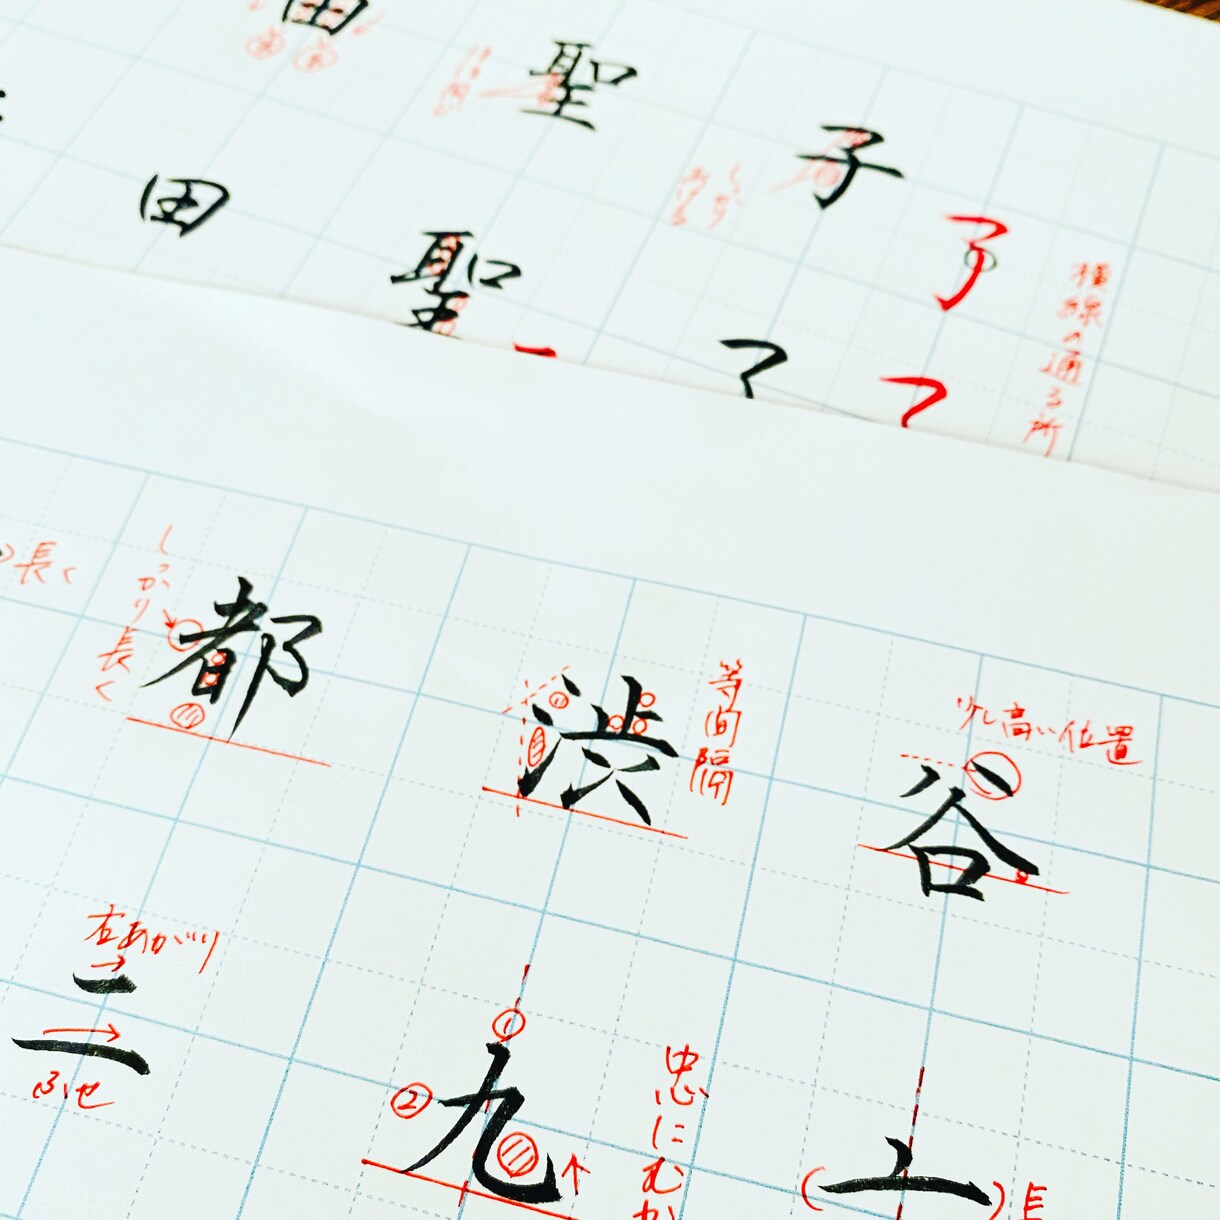 田 聖 子
田 聖
横線の通る所
長く
しっかり長く
都 渋 谷
等間隔
少し高い位置
右あがり
二
ふせ
① ② 九
上
長